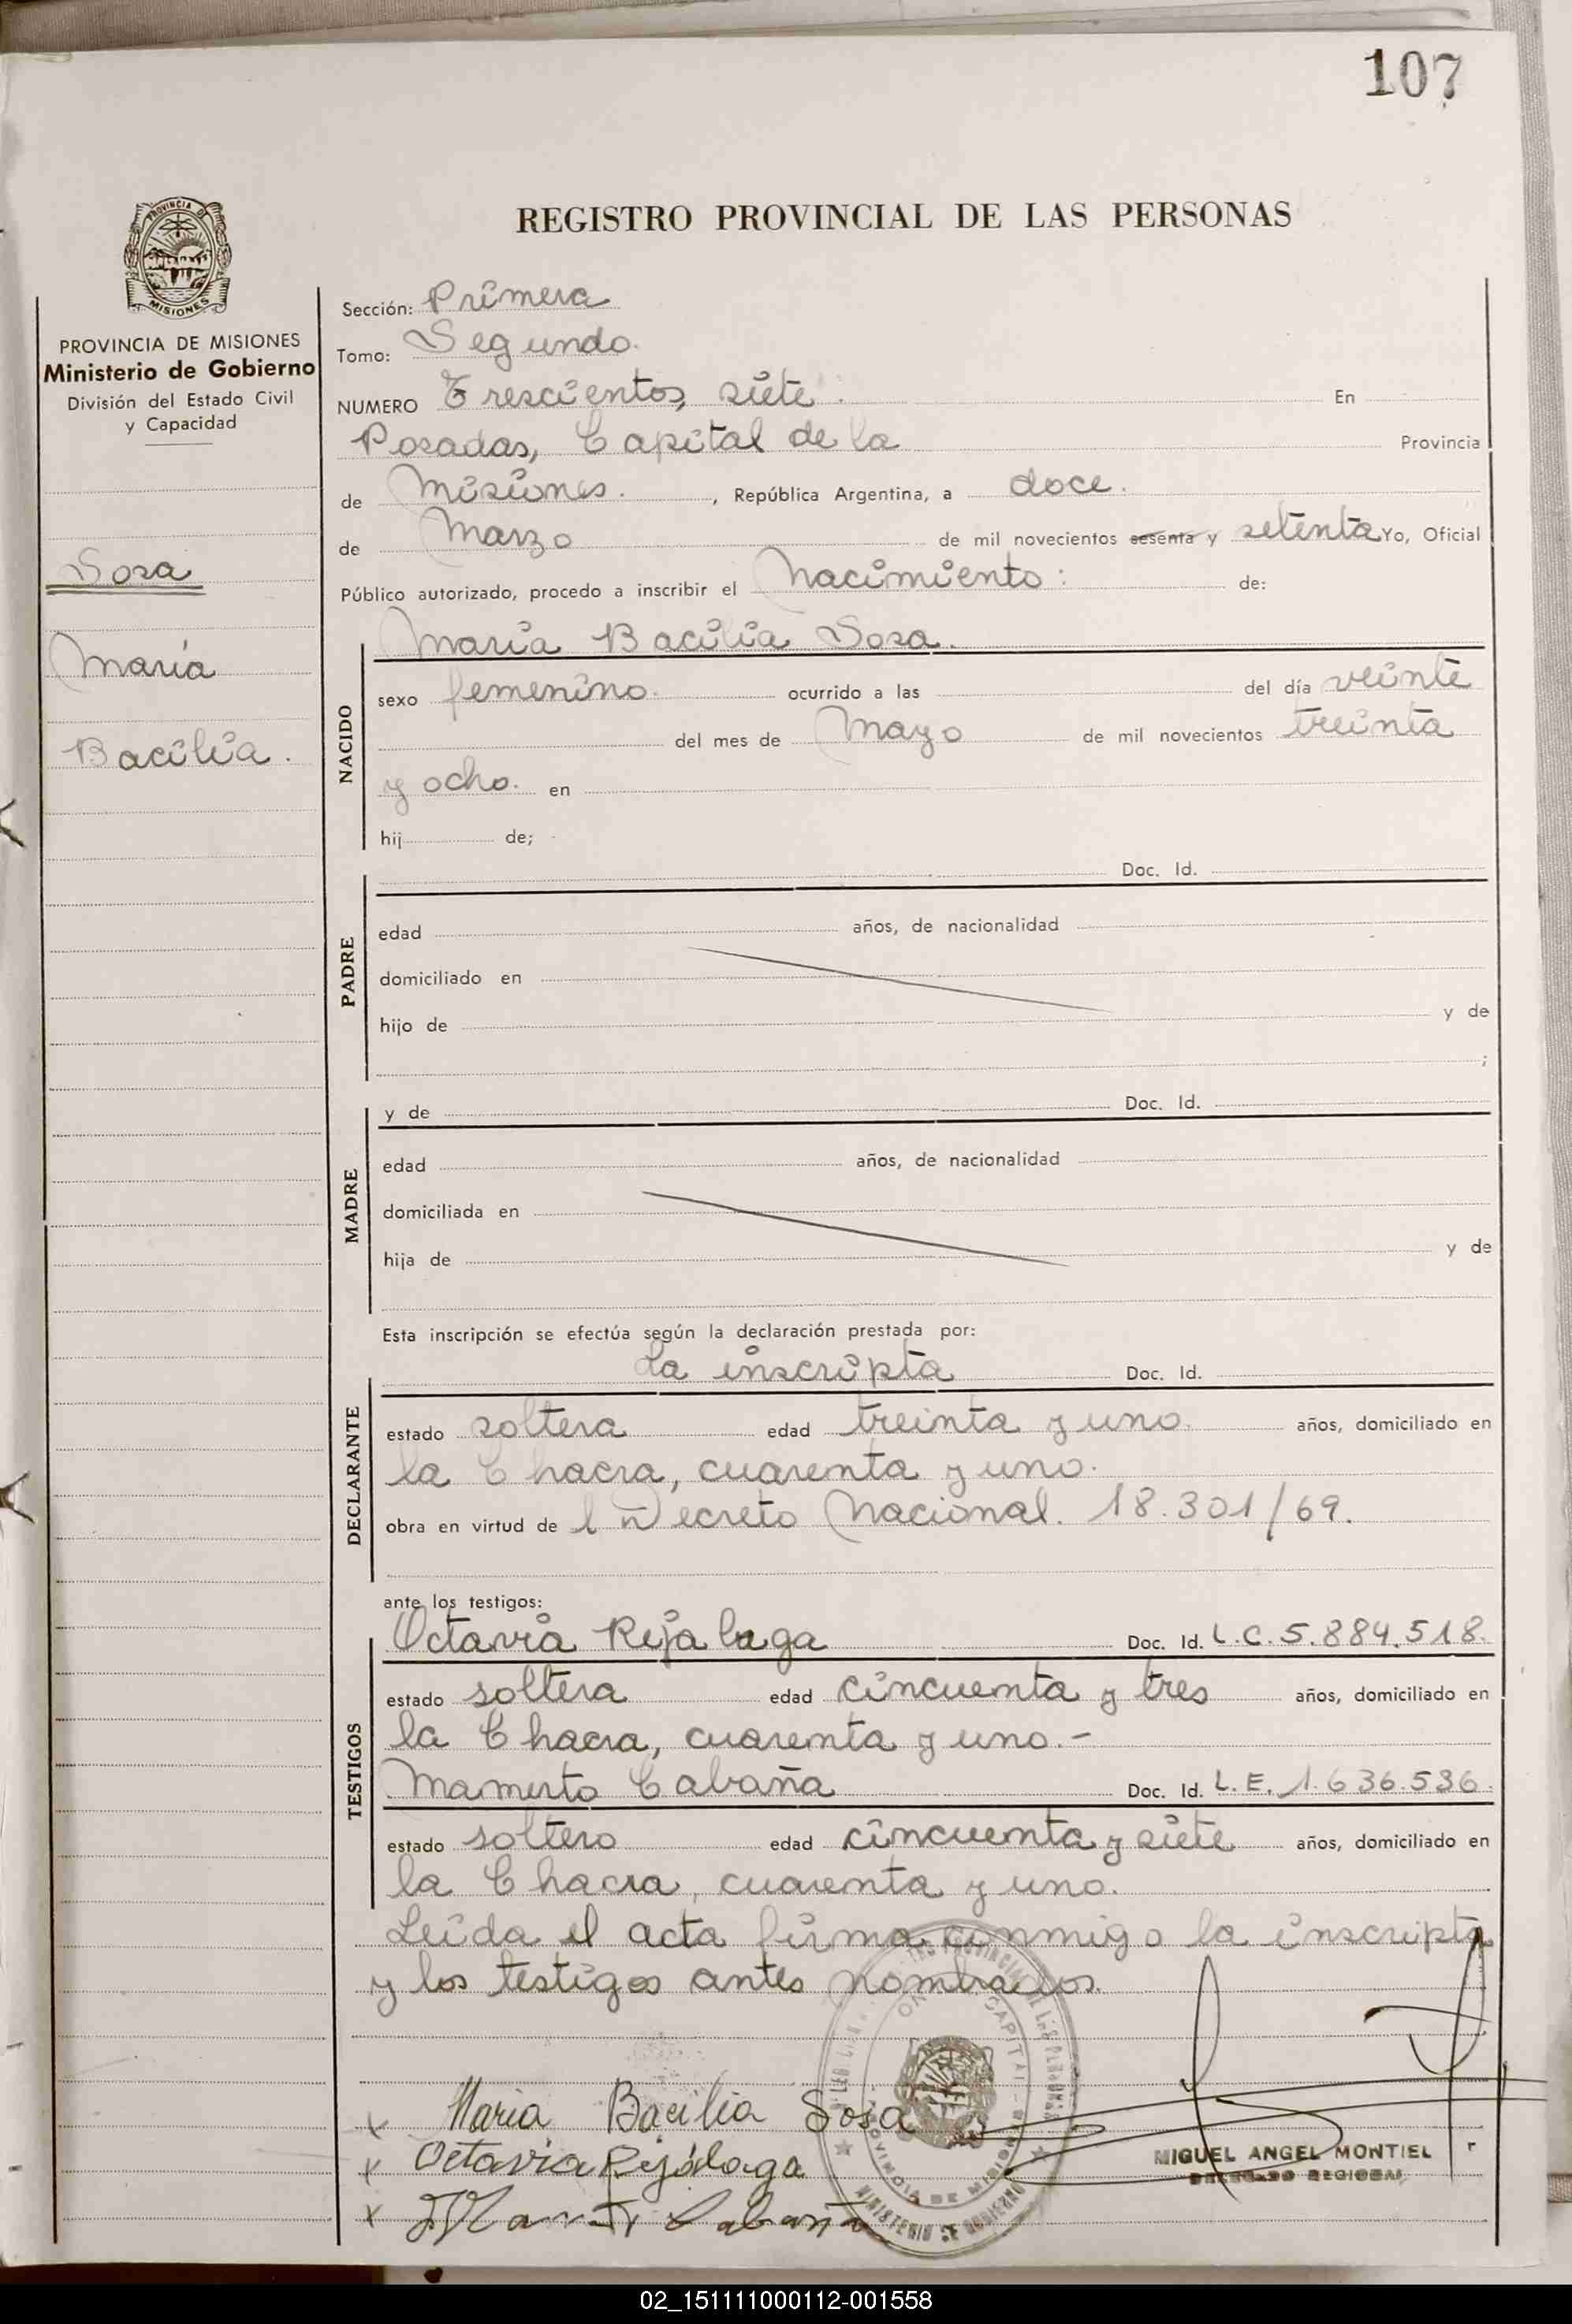 107
REGISTRO PROVINCIAL DE LAS PERSONAS
PROVINCIA DE MISIONES
Ministerio de Gobierno
División del Estado Civil
y Capacidad
Sosa
María
Bacilia.
Sección: Primera
Tomo: Segundo.
NUMERO Trescientos, siete. En
Posadas, Capital de la Provincia
de Misiones. , República Argentina, a doce.
de Marzo de mil novecientos sesenta y setenta Yo, Oficial
Público autorizado, procedo a inscribir el Nacimiento: de:
NACIDO
María Bacilia Sosa.
sexo femenino. ocurrido a las del día veinte
del mes de Mayo de mil novecientos treinta
y ocho. en
hij de;
PADRE
Doc. Id.
edad años, de nacionalidad
domiciliado en
hijo de y de
;
MADRE
y de Doc. Id.
edad años, de nacionalidad
domiciliada en
hija de y de
Esta inscripción se efectúa según la declaración prestada por:
DECLARANTE
La inscripta Doc. Id.
estado soltera edad treinta y uno. años, domiciliado en
la Chacra, cuarenta y uno.
obra en virtud de l Decreto Nacional. 18.301/69.
ante los testigos:
TESTIGOS
Octavia Rejalaga Doc. Id. L.C. 5.884.518.
estado soltera edad cincuenta y tres años, domiciliado en
la Chacra, cuarenta y uno.-
Mamerto Cabaña Doc. Id. L.E. 1.636.536.
estado soltero edad cincuenta y siete años, domiciliado en
la Chacra, cuarenta y uno.
Leida el acta firma conmigo la inscripta
y los testigos antes nombrados.
Maria Bacilia Sosa
Octavia Rejálaga
Cabaña
MIGUEL ANGEL MONTIEL
DELEGADO REGIONAL
PROVINCIA DE MISIONES
MINISTERIO DE GOBIERNO
02_151111000112-001558